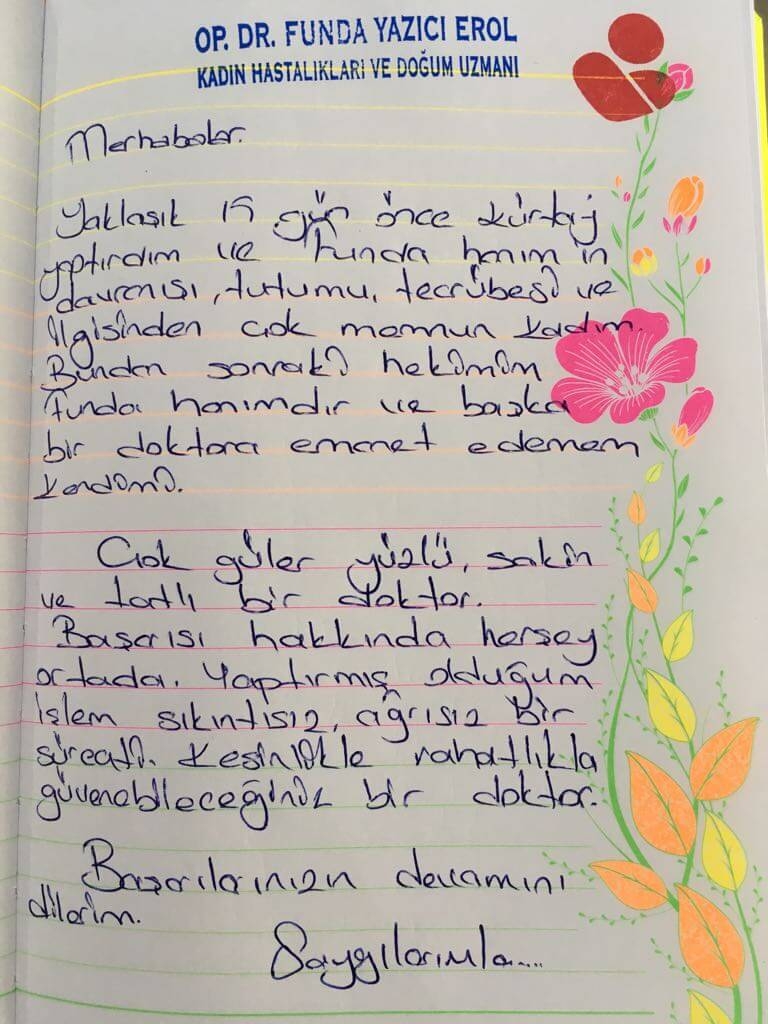 OP. DR. FUNDA YAZICI EROL
KADIN HASTALIKLARI VE DOĞUM UZMANI
Merhabalar.
Yaklaşık 15 gün önce kürtaj
yaptırdım ve Funda hanım'ın
davranışı, tutumu, tecrübesi ve
ilgisinden çok memnun kaldım.
Bundan sonraki hekimim
Funda hanımdır ve başka
bir doktora emanet edemem
kendimi.
Çok güler yüzlü, sakin
ve tatlı bir doktor.
Başarısı hakkında herşey
ortada. Yaptırmış olduğum
işlem sıkıntısız, ağrısız bir
süreçti. Kesinlikle rahatlıkla
güvenebileceğiniz bir doktor.
Başarılarınızın devamını
dilerim.
Saygılarımla....